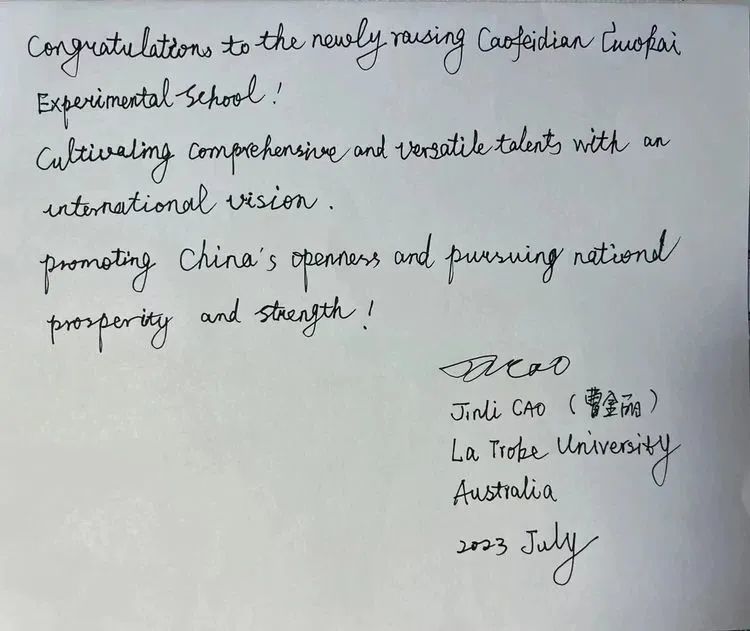 Congratulations to the newly raising Caofeidian
Experimental School!
Cultivating comprehensive and versatile talents with an
international vision.
promoting China's openness and pursuing national
prosperity and strength!
Jinli CAO (曹金丽)
La Trobe University
Australia
2023 July